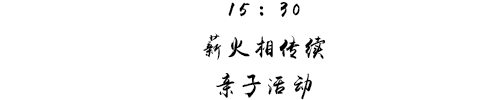 15：30
薪火相传续
亲子活动